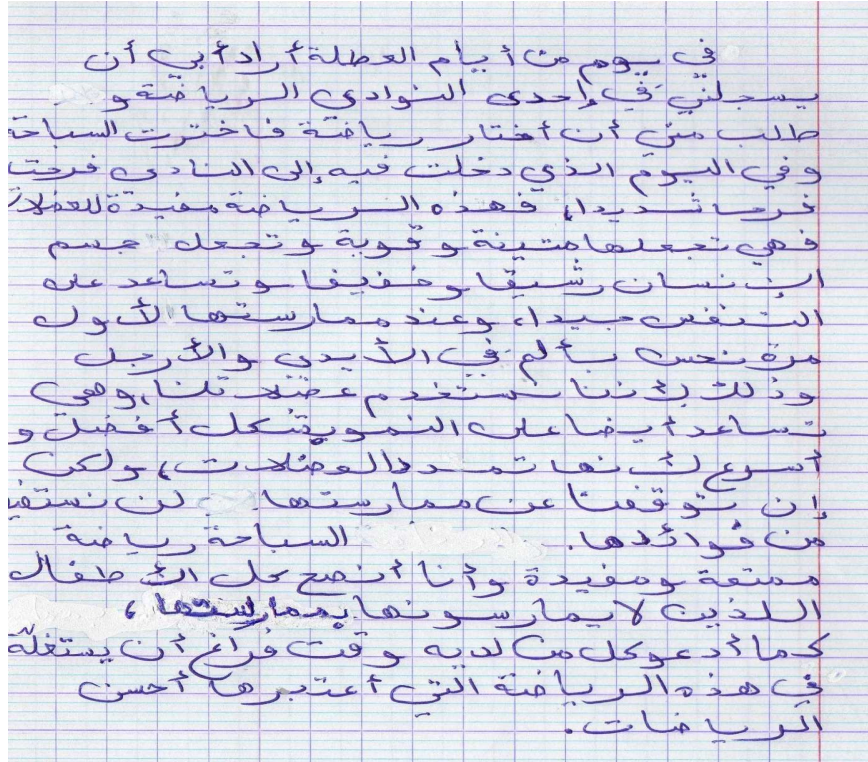 في يوم من أيام العطلة أراد أبي أن
يسجلني في إحدى النوادي الرياضة و
طلب مني أن أختار رياضة فاخترت السباحة
وفي اليوم الذي دخلت فيه إلى النادي فرحت
فرحا شديدا، فهذه الرياضة مفيدة للعضلات
فهي تجعلها متينة وقوية وتجعل جسم
الإنسان رشيقا وخفيفا وتساعد على
التنفس جيدا، وعند ممارستها لأول
مرة نحس بألم في الأيدي والأرجل
وذلك لأننا نستخدم عضلاتنا، وهي
تساعد أيضا على النمو بشكل أفضل و
أسرع لأنها تمدد العضلات، ولكن
إن توقفنا عن ممارستها لن نستفيد
من فوائدها. السباحة رياضة
ممتعة ومفيدة وأنا أنصح كل الأطفال
اللذين لا يمارسونها بممارستها،
كما أدعو كل من لديه وقت فراغ أن يستغلّه
في هذه الرياضة التي أعتبرها أحسن
الرياضات.